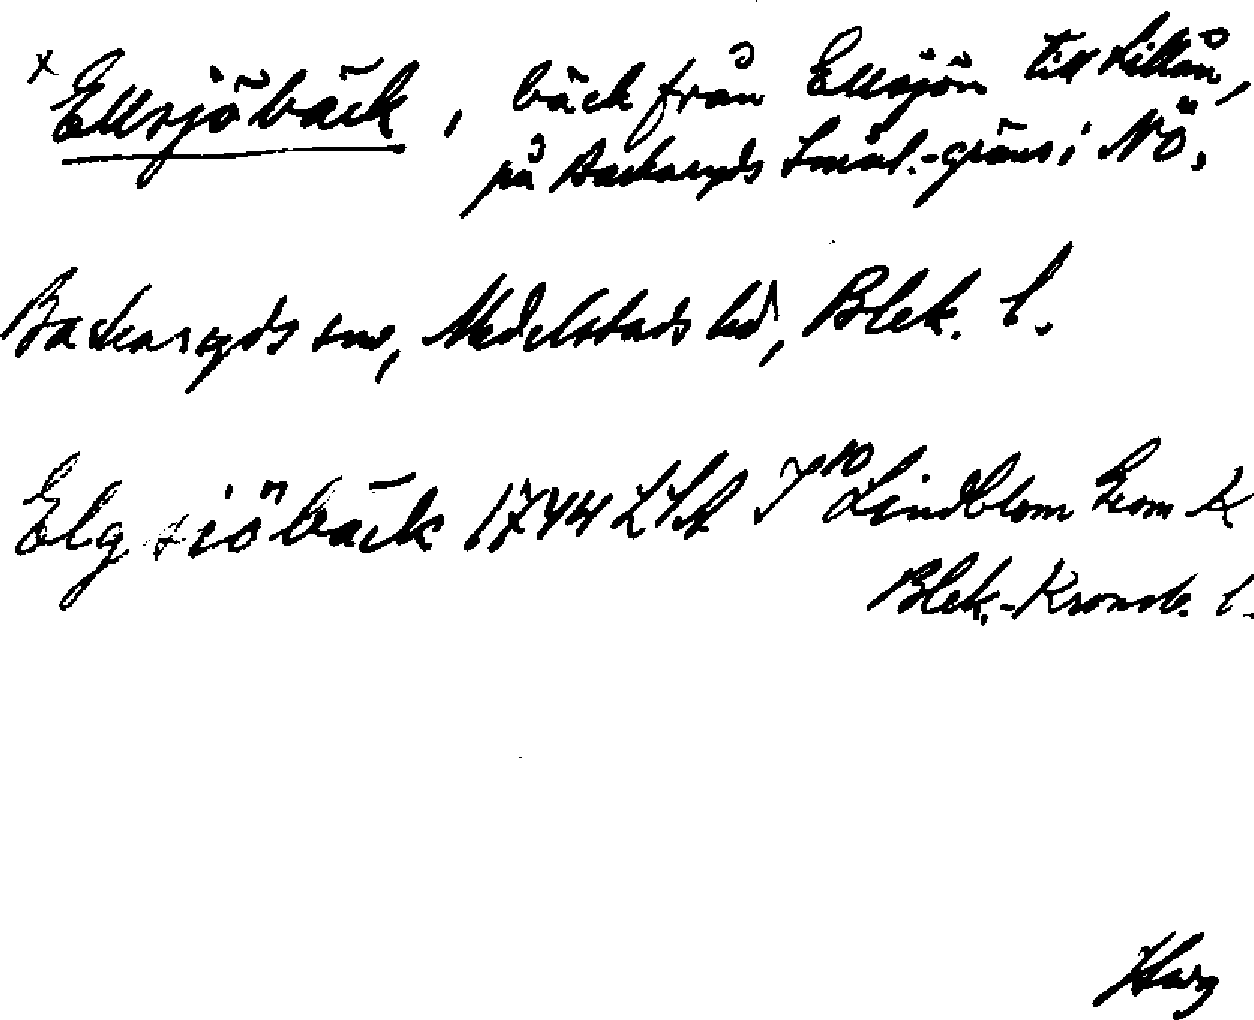 x Ellsjöbäck, bäck från Ellsjön till Lillån,
på Backaryds Smål.-gräns i NÖ.
Backaryds sn, Medelstads hd, Blek. l.
Elgsiöbäck 1744 LSA I 10 Lindblom Geom K
Blek.-Kronob. l.